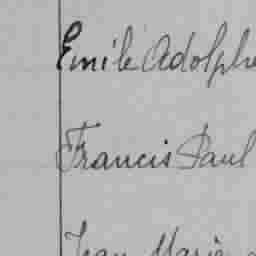 Emile Adolphe
Francis Paul
Jean Marie